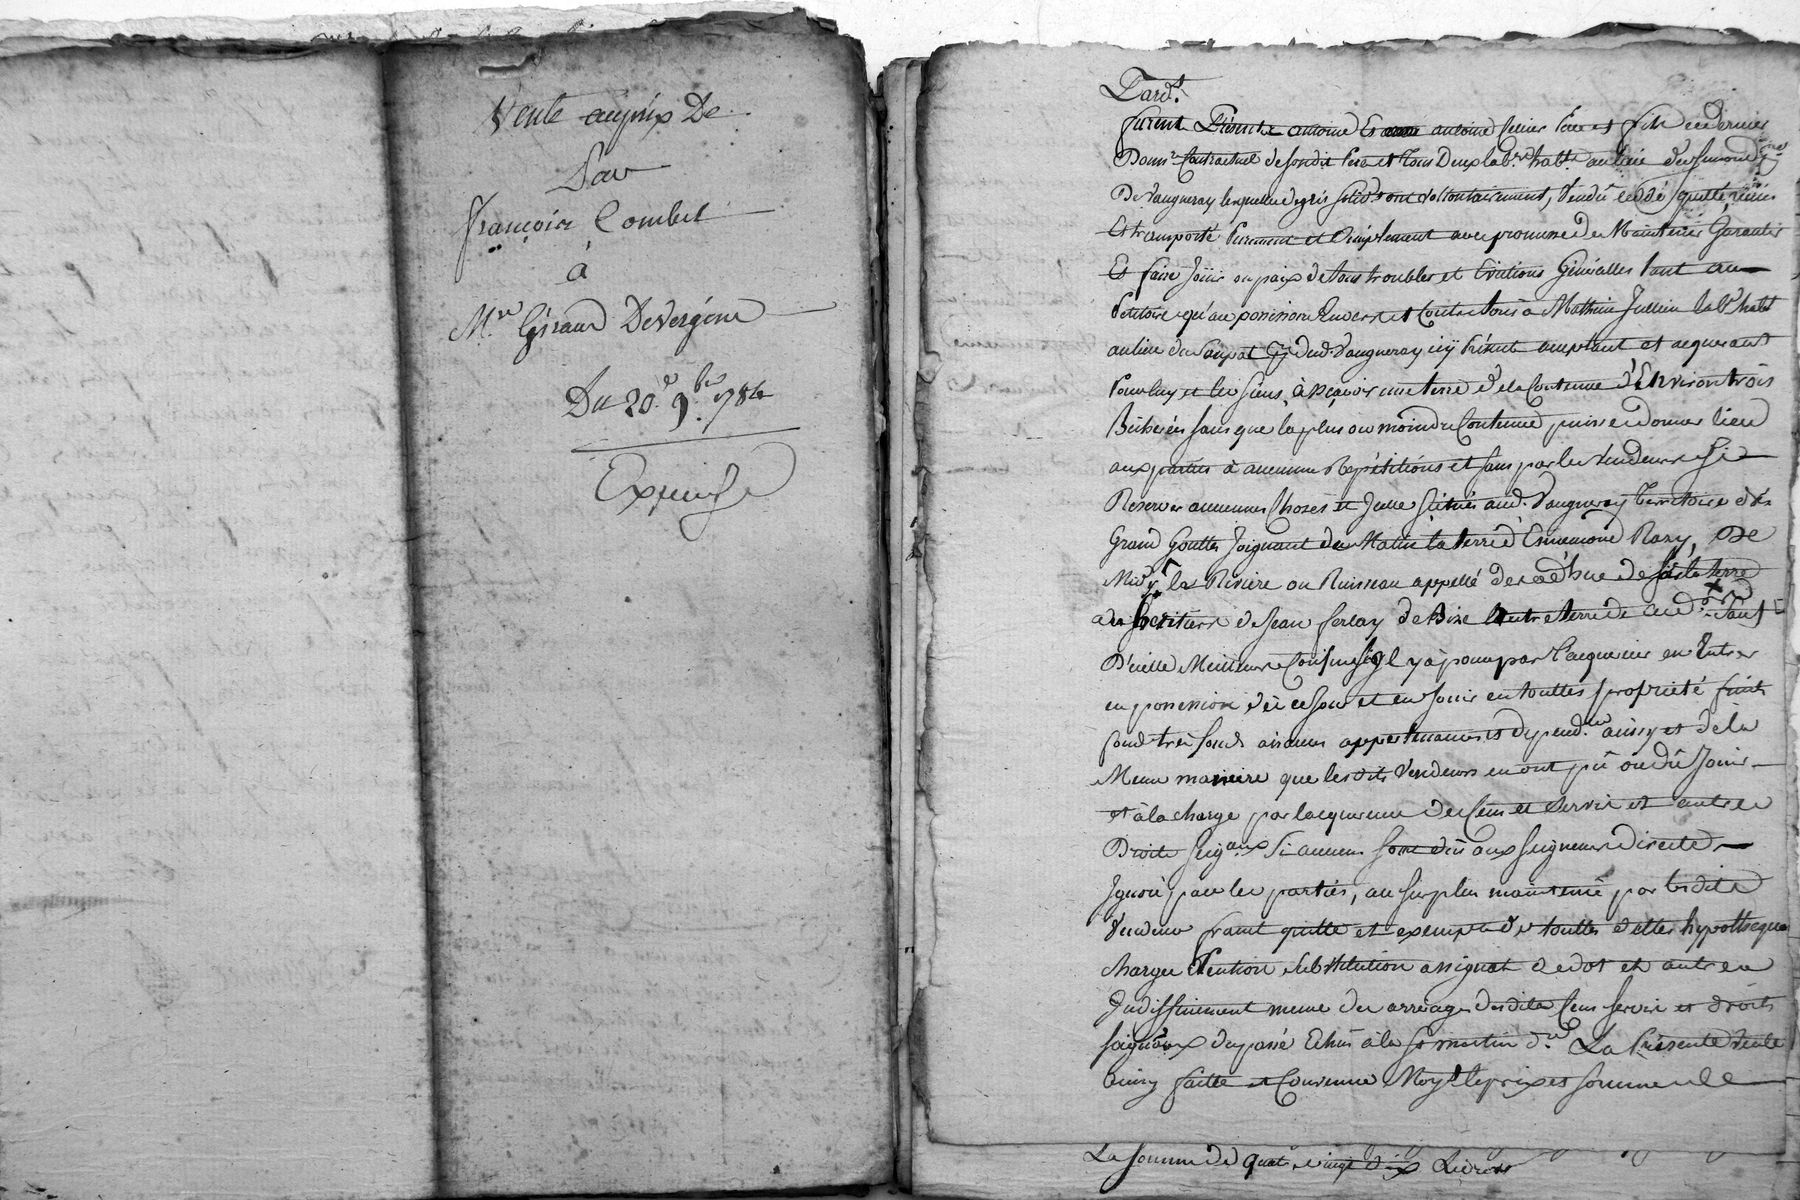 Vente au prix De
Par
françois Combet
à
Mre Giraud DeVergéne
Du 20e 9bre 1784
Expensé
Pardt
furent Présents antoine Es antoine pere et fils ce dernier
Donnre Contractuel desondit Pere et Tous Deux labrs habts au lieu
De Vaugneray lesquels degré solidt ont volontairement, Vendu cedé quitté remis
Et transporté Purement et Simplement avec promesse de Maintenir Garantir
Et faire Jouir en paix de tous troubles et Evictions Généralles tant au
Petitoire qu'au possessoire Envers et Contre tous à Mathieu Jullien labr habt
au lieu du psse dud. Vaugneray icy Présent acceptant et acquerant
Pour luy et les siens, à sçavoir une terre de la Contenue d'Environ trois
Bicherées sans que le plus ou moindre Contenue puisse donner lieu
aux parties à aucunes Répétitions et sans par les vendeurs si
Reserver aucunes Choses et Icelle située aud. Vaugneray Territoire des
Grand Gouttes Joignant de Matin la terre d'Ennemond Razy, De
Midy la Riviere ou Ruisseau appellé de de soir la terre
des heritiers de Jean ferlay de Bize autre terre de Sauf
D'icelle Meilleurs Confins s'il y a pour par l'acquereur en Entrer
en possession dès ce jour et en Jouir en touttes proprieté fruits
fond très fonds aisances appartenances et dépend.ces ainsy et de la
Meme maniere que lesdits Vendeurs en ont pû ou dû Jouir
et à la charge par l'acquereur des Cens et servis et autres
Droits seigaux si aucuns sont dûs aux seigneurs directs
Ignoré par les parties, au surplus maintenue par lesdits
Vendeurs franc quitte et exempte de touttes dettes hypotheques
charges Pention substitution assignat de dot et autres
Indiffiniment meme des arrerages desdits Cens servis et droits
seignaux du passé Echus à la St martin dre La Présente Vente
ainsy faitte et Convenue Moyt le prix et somme de
La somme de quatre vingt dix Livres